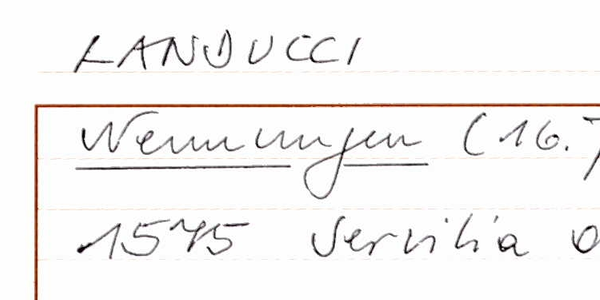 LANDUCCI
Nennungen (16.)
1545 Servilia